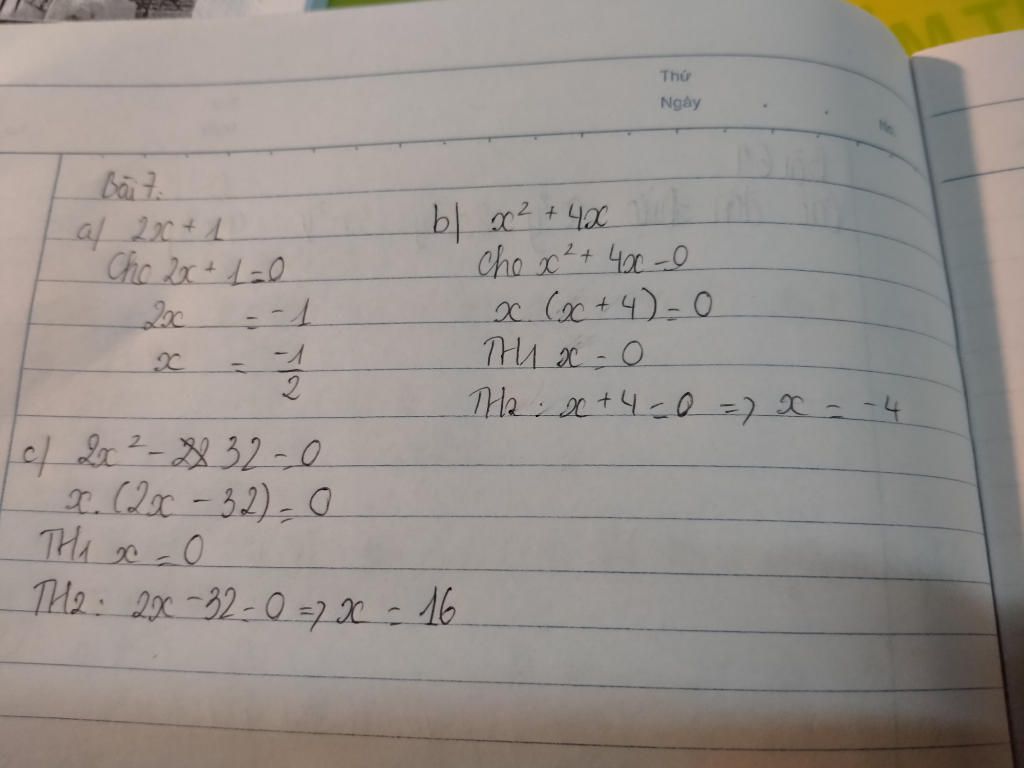 Thứ
Ngày
No.
Bài 7:
a) 2x + 1
Cho 2x + 1 = 0
2x = -1
x = -1/2
b) x² + 4x
Cho x² + 4x = 0
x (x + 4) = 0
TH1 x = 0
TH2 : x + 4 = 0 => x = -4
c) 2x² - 32 = 0
x. (2x - 32) = 0
TH1 x = 0
TH2 : 2x - 32 = 0 => x = 16